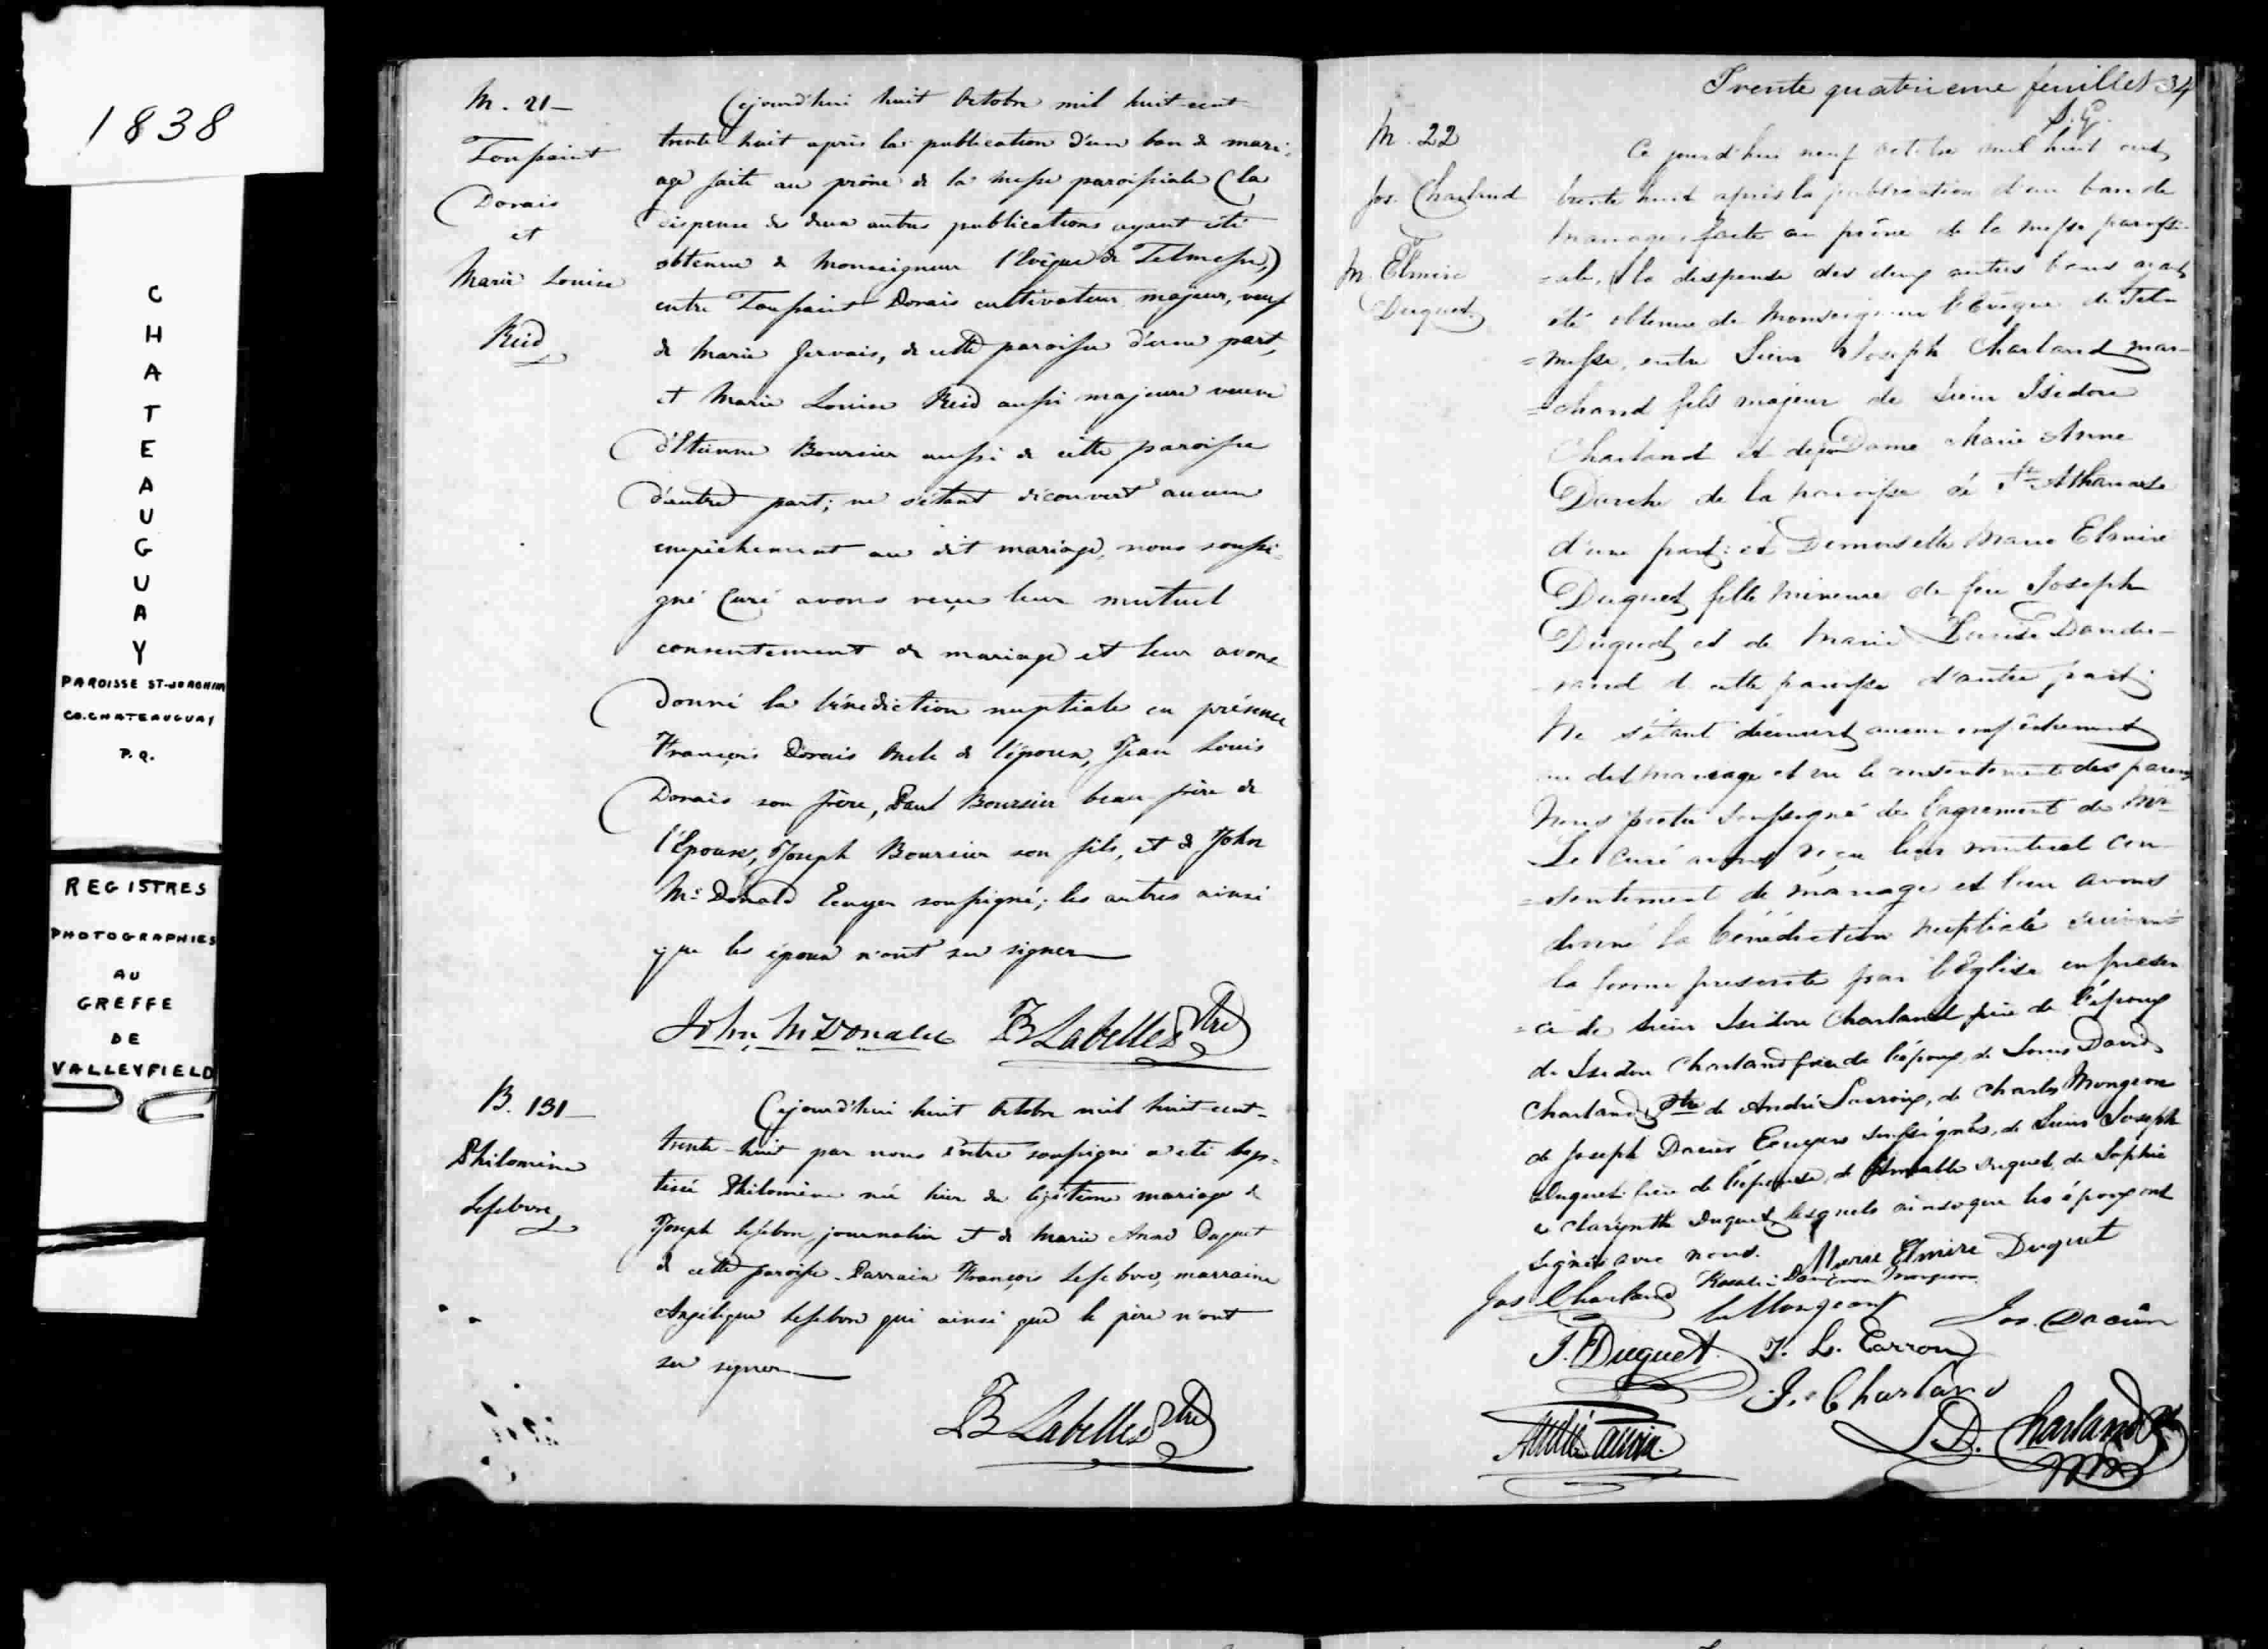 1838
CHATEAUGUAY
PAROISSE ST-JOACHIM
CO. CHATEAUGUAY
P.Q.
REGISTRES
PHOTOGRAPHIES
AU
GREFFE
DE
VALLEYFIELD
M. 21
Toussaint
Dorais
et
Marie Louise
Reid
Cejourd'hui huit Octobre mil huit-cent
trente-huit après la publication d'un ban de mari-
age faite au prône de la Messe paroissiale (la
dispense de deux autres publications ayant été
obtenue de Monseigneur l'Evêque de Telmesse,)
entre Toussaint Dorais cultivateur majeur, veuf
de Marie Gervais, de cette paroisse d'une part,
et Marie Louise Reid aussi majeure veuve
d'Etienne Boursier aussi de cette paroisse
d'autre part; ne s'étant découvert aucun
empêchement au dit mariage, nous soussi-
gné Curé avons reçu leur mutuel
consentement de mariage et leur avons
donné la bénédiction nuptiale en présence
François Dorais Oncle de l'époux, Jean Louis
Dorais son frère, Paul Boursier beau-frère de
l'Epouse, Joseph Boursier son fils, et de John
Mc Donald Ecuyer soussigné; les autres ainsi
que les époux n'ont su signer
John McDonald JB Labelle Ptre
B. 131
Philomène
Lefebvre
Cejourd'hui huit Octobre mil huit-cent-
trente-huit par nous Prêtre soussigné a été bap-
tisée Philomène née hier du légitime mariage de
Joseph Lefebvre, journalier et de Marie Anne Duquet
de cette paroisse. Parrain François Lefebvre, marraine
Angélique Lefebvre qui ainsi que le père n'ont
su signer
JB Labelle Ptre
Trente quatrieme feuillet 34
S.G.
M. 22
Jos. Charland
M. Elmire
Duquet
Ce jourd'hui neuf octobre mil huit cent
trente huit après la publication d'un ban de
mariage faite au prône de la messe paroissi-
=ale, la dispense des deux autres bans ayant
été obtenue de Monseigneur l'Evêque de Tel-
=messe, entre Sieur Joseph Charland mar-
=chand fils majeur de Sieur Isidore
Charland et de Dame Marie Anne
Darche de la paroisse de St Athanase
d'une part; et Demoiselle Marie Elmire
Duquet fille mineure de feu Joseph
Duquet et de Marie Louise Dandu-
-rand de cette paroisse d'autre part;
Ne s'étant découvert aucun empêchement
au dit mariage et vu le consentement des parens
Nous prêtre soussigné de l'agrement de Mr
Le Curé avons reçu leur mutuel con-
=sentement de mariage et leur avons
donné la bénédiction nuptiale suivant
la forme prescrite par l'Eglise en presen
=ce de Sieur Isidore Charland père de l'époux
de Isidore Charland frère de l'époux, de Louis David
Charland Ptre de André Lacroix, de Charles Mongeon
de Joseph Dacier Ecuyers soussignés, de Sieur Joseph
Duquet frère de l'épouse, de Duquet, de Sophie
Duquet lesquels ainsi que les époux ont
signés avec nous. Marie Elmire Duquet
Jos Charland Rosalie
Mongeon Jos. Dacier
J. Duquet J. L. Carron
I. Charland
L D. Charland Ptre